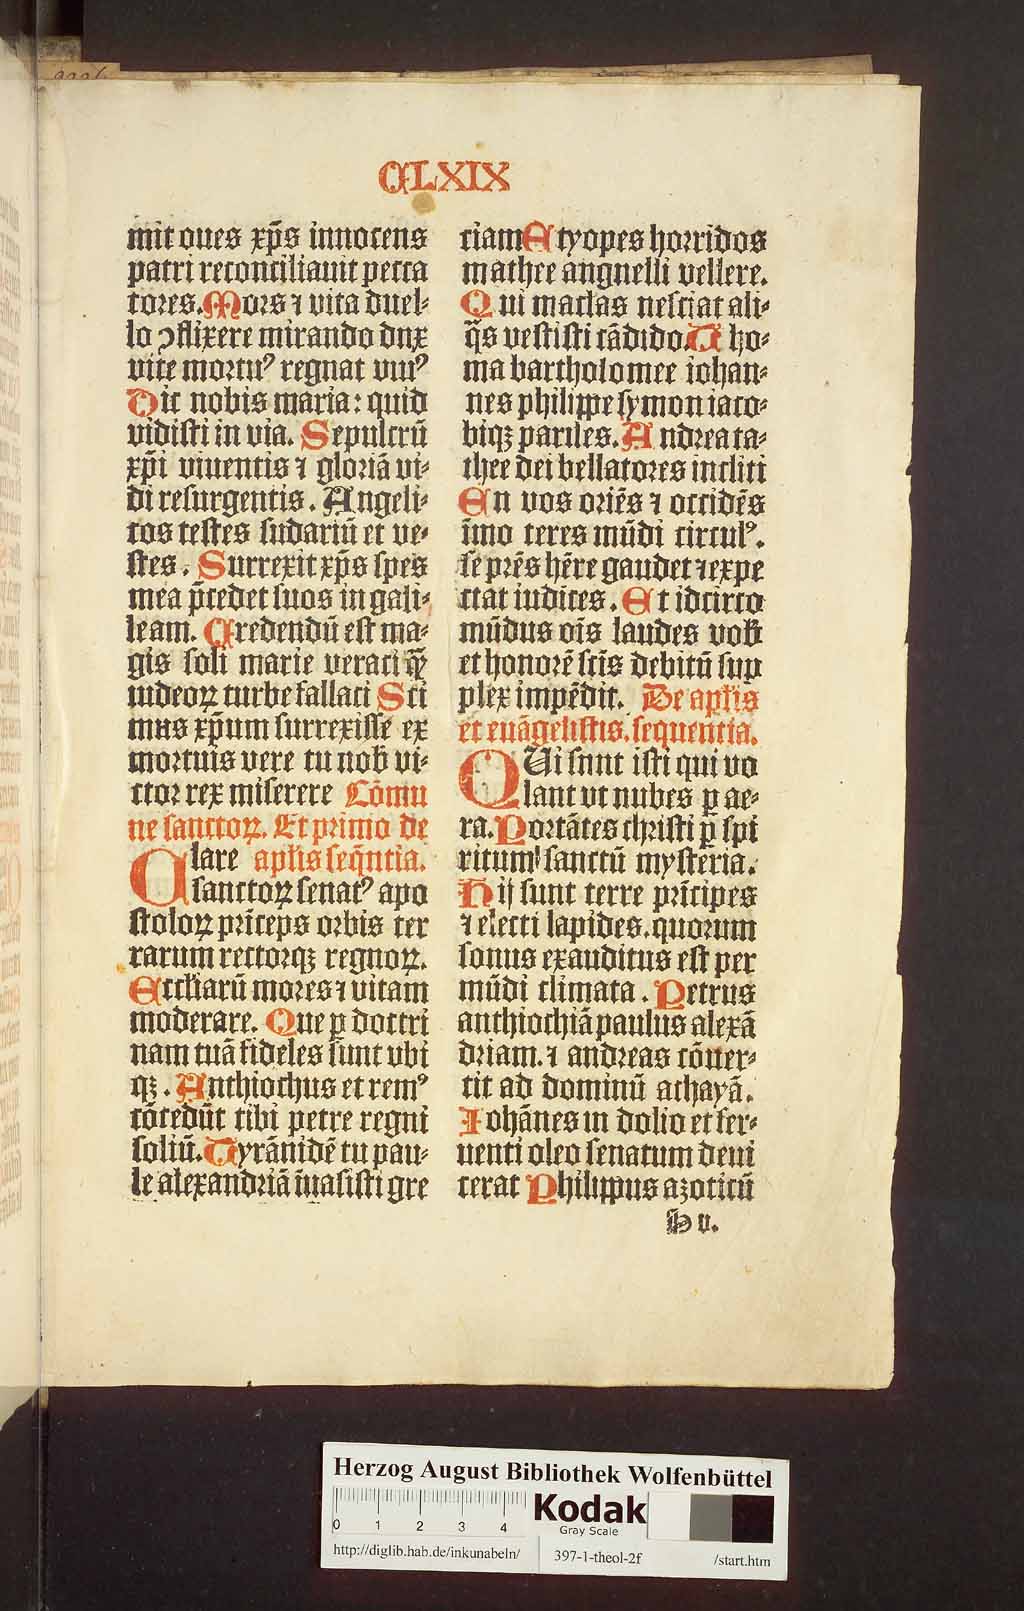 CLXIX
mit oues xp̄s innocens
patri reconciliauit pecca
tores. Mors ⁊ vita duel⸗
lo ꝯflixere mirando dux
vite mortuꝰ regnat viuꝰ
Dic nobis maria: quid
vidisti in via. Sepulcrū
xp̄i viuentis ⁊ gloriā vi⸗
di resurgentis. Angeli⸗
cos testes sudariū et ve⸗
stes. Surrexit xp̄s spes
mea p̄cedet suos in gali⸗
leam. Credendū est ma⸗
gis soli marie veraci q̄ꝫ
iudeoꝝ turbe fallaci Sci
mus xp̄um surrexisse ex
mortuis vere tu nob̄ vi⸗
ctor rex miserere Cōmu
ne sanctoꝝ. Et primo de
Clare apl̄is seq̄ntia.
sanctoꝝ senatꝰ apo
stoloꝝ prīceps orbis ter
rarum rectorqꝫ regnoꝝ.
Eccl̄iarū mores ⁊ vitam
moderare. Que ꝑ doctri
nam tuā fideles sunt vbi
qꝫ. Anthiochus et remꝰ
cōcedūt tibi petre regni
soliū. Tyrānidē tu pau⸗
le alexandriā īuasisti gre
ciam Etyopes horridos
mathee angnelli vellere.
Qui maclas nesciat ali⸗
q̄s vestisti cādido. Tho⸗
ma bartholomee iohan⸗
nes philippe symon iaco⸗
biqꝫ pariles. Andrea ta⸗
thee dei bellatores incliti
En vos oriēs ⁊ occidēs
īmo teres mūdi circulꝰ.
se prēs hēre gaudet ⁊ expe
ctat iudices. Et idcirco
mūdus oīs laudes vob̄
et honorē scīs debitū sup
plex impēdit. De apl̄is
et euāgelistis. sequentia.
QUi sunt isti qui vo
lant vt nubes ꝑ ae⸗
ra. Portātes christi ꝑ spi
ritum sanctū mysteria.
Hij sunt terre prīcipes
⁊ electi lapides. quorum
sonus exauditus est per
mūdi climata. Petrus
anthiochiā paulus alexā
driam. ⁊ andreas cōuer⸗
tit ad dominū achayā.
Iohānes in dolio et fer⸗
uenti oleo senatum deui
cerat Philippus azoticū
H̄ v.
Herzog August Bibliothek Wolfenbüttel
0 1 2 3 4
Kodak
Gray Scale
http://diglib.hab.de/inkunabeln/ 397-1-theol-2f /start.htm